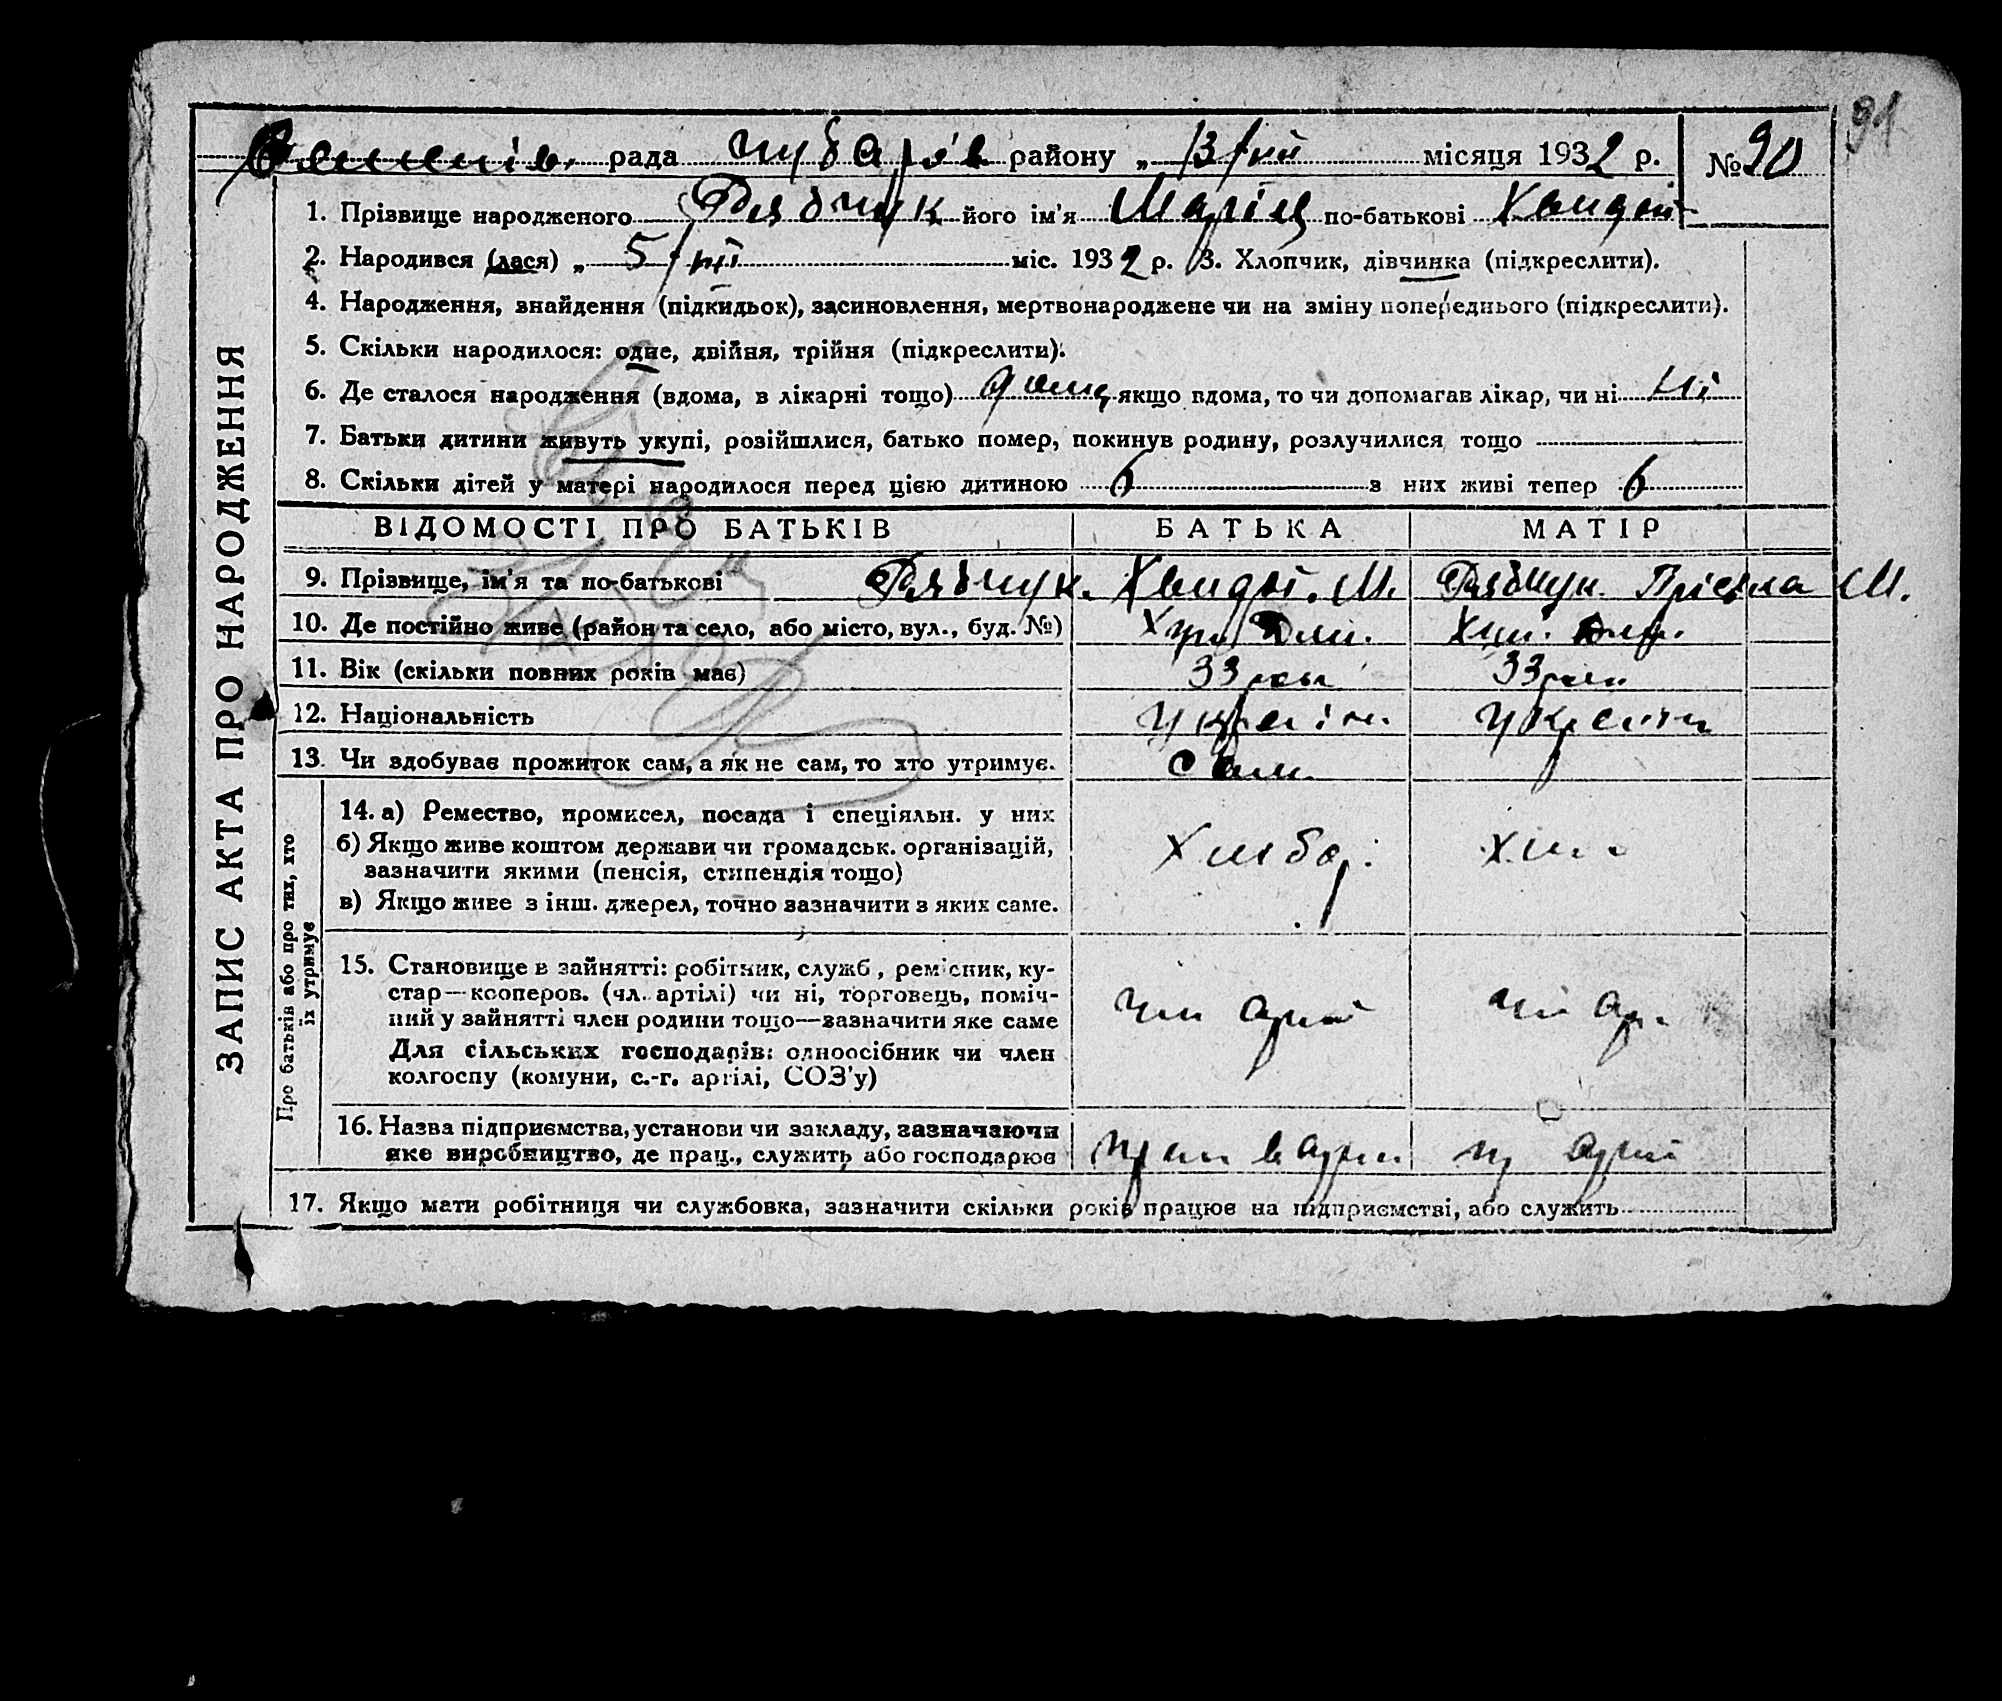 91
рада Чубарів району „ 13/ місяця 1932 р. № 90
1. Прізвище народженого Рябчук його ім'я Марія по-батькові
2. Народився (лася) „ 5/ міс. 1932 р. 3. Хлопчик, дівчинка (підкреслити).
4. Народження, знайдення (підкидьок), засиновлення, мертвонароджене чи на зміну попереднього (підкреслити).
5. Скільки народилося: одне, двійня, трійня (підкреслити).
6. Де сталося народження (вдома, в лікарні тощо) дома якщо вдома, то чи допомагав лікар, чи ні Ні
7. Батьки дитини живуть укупі, розійшлися, батько помер, покинув родину, розлучилися тощо
8. Скільки дітей у матері народилося перед цією дитиною 6 з них живі тепер 6
ВІДОМОСТІ ПРО БАТЬКІВ БАТЬКА МАТІР
9. Прізвище, ім'я та по-батькові Рябчук. М. Рябчук. М.
10. Де постійно живе (район та село, або місто, вул., буд. №)
11. Вік (скільки повних років має) 33 роки 33 роки
12. Національність Україн. Україн
13. Чи здобуває прожиток сам, а як не сам, то хто утримує. Сам.
14. а) Ремество, промисел, посада і спеціяльн. у них Хлібор.
б) Якщо живе коштом держави чи громадськ. організацій,
зазначити якими (пенсія, стипендія тощо)
в) Якщо живе з інш. джерел, точно зазначити з яких саме.
15. Становище в зайнятті: робітник, служб, ремісник, ку-
стар—кооперов. (чл. артілі) чи ні, торговець, поміч-
ний у зайнятті член родини тощо—зазначити яке саме
Для сільських господарів: одноосібник чи член
колгоспу (комуни, с.-г. артілі, СОЗ'у)
16. Назва підприємства, установи чи закладу, зазначаючи
яке виробництво, де прац., служить або господарює
17. Якщо мати робітниця чи службовка, зазначити скільки років працює на підприємстві, або служить
ЗАПИС АКТА ПРО НАРОДЖЕННЯ
Про батьків або про тих, хто
їх утримує